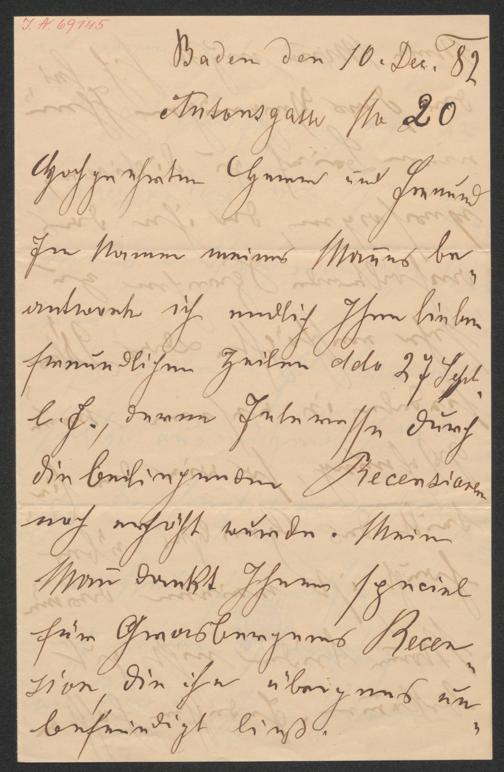 J. N. 69745
Baden den 10. Dec. 82
Antonsgasse No 20
Hochgeehrter Herr und Freund
Im Namen meines Mannes be-
antworte ich endlich Ihre lieben
freundlichen Zeilen ddo 27 Sept.
l. J., deren Interesse durch
die beiliegenden Recensionen
noch erhöht wurde. Mein
Mann dankt Ihnen speciel
für Grasbergers Recen-
sion, die ihn übrigens un-
befriedigt ließ.